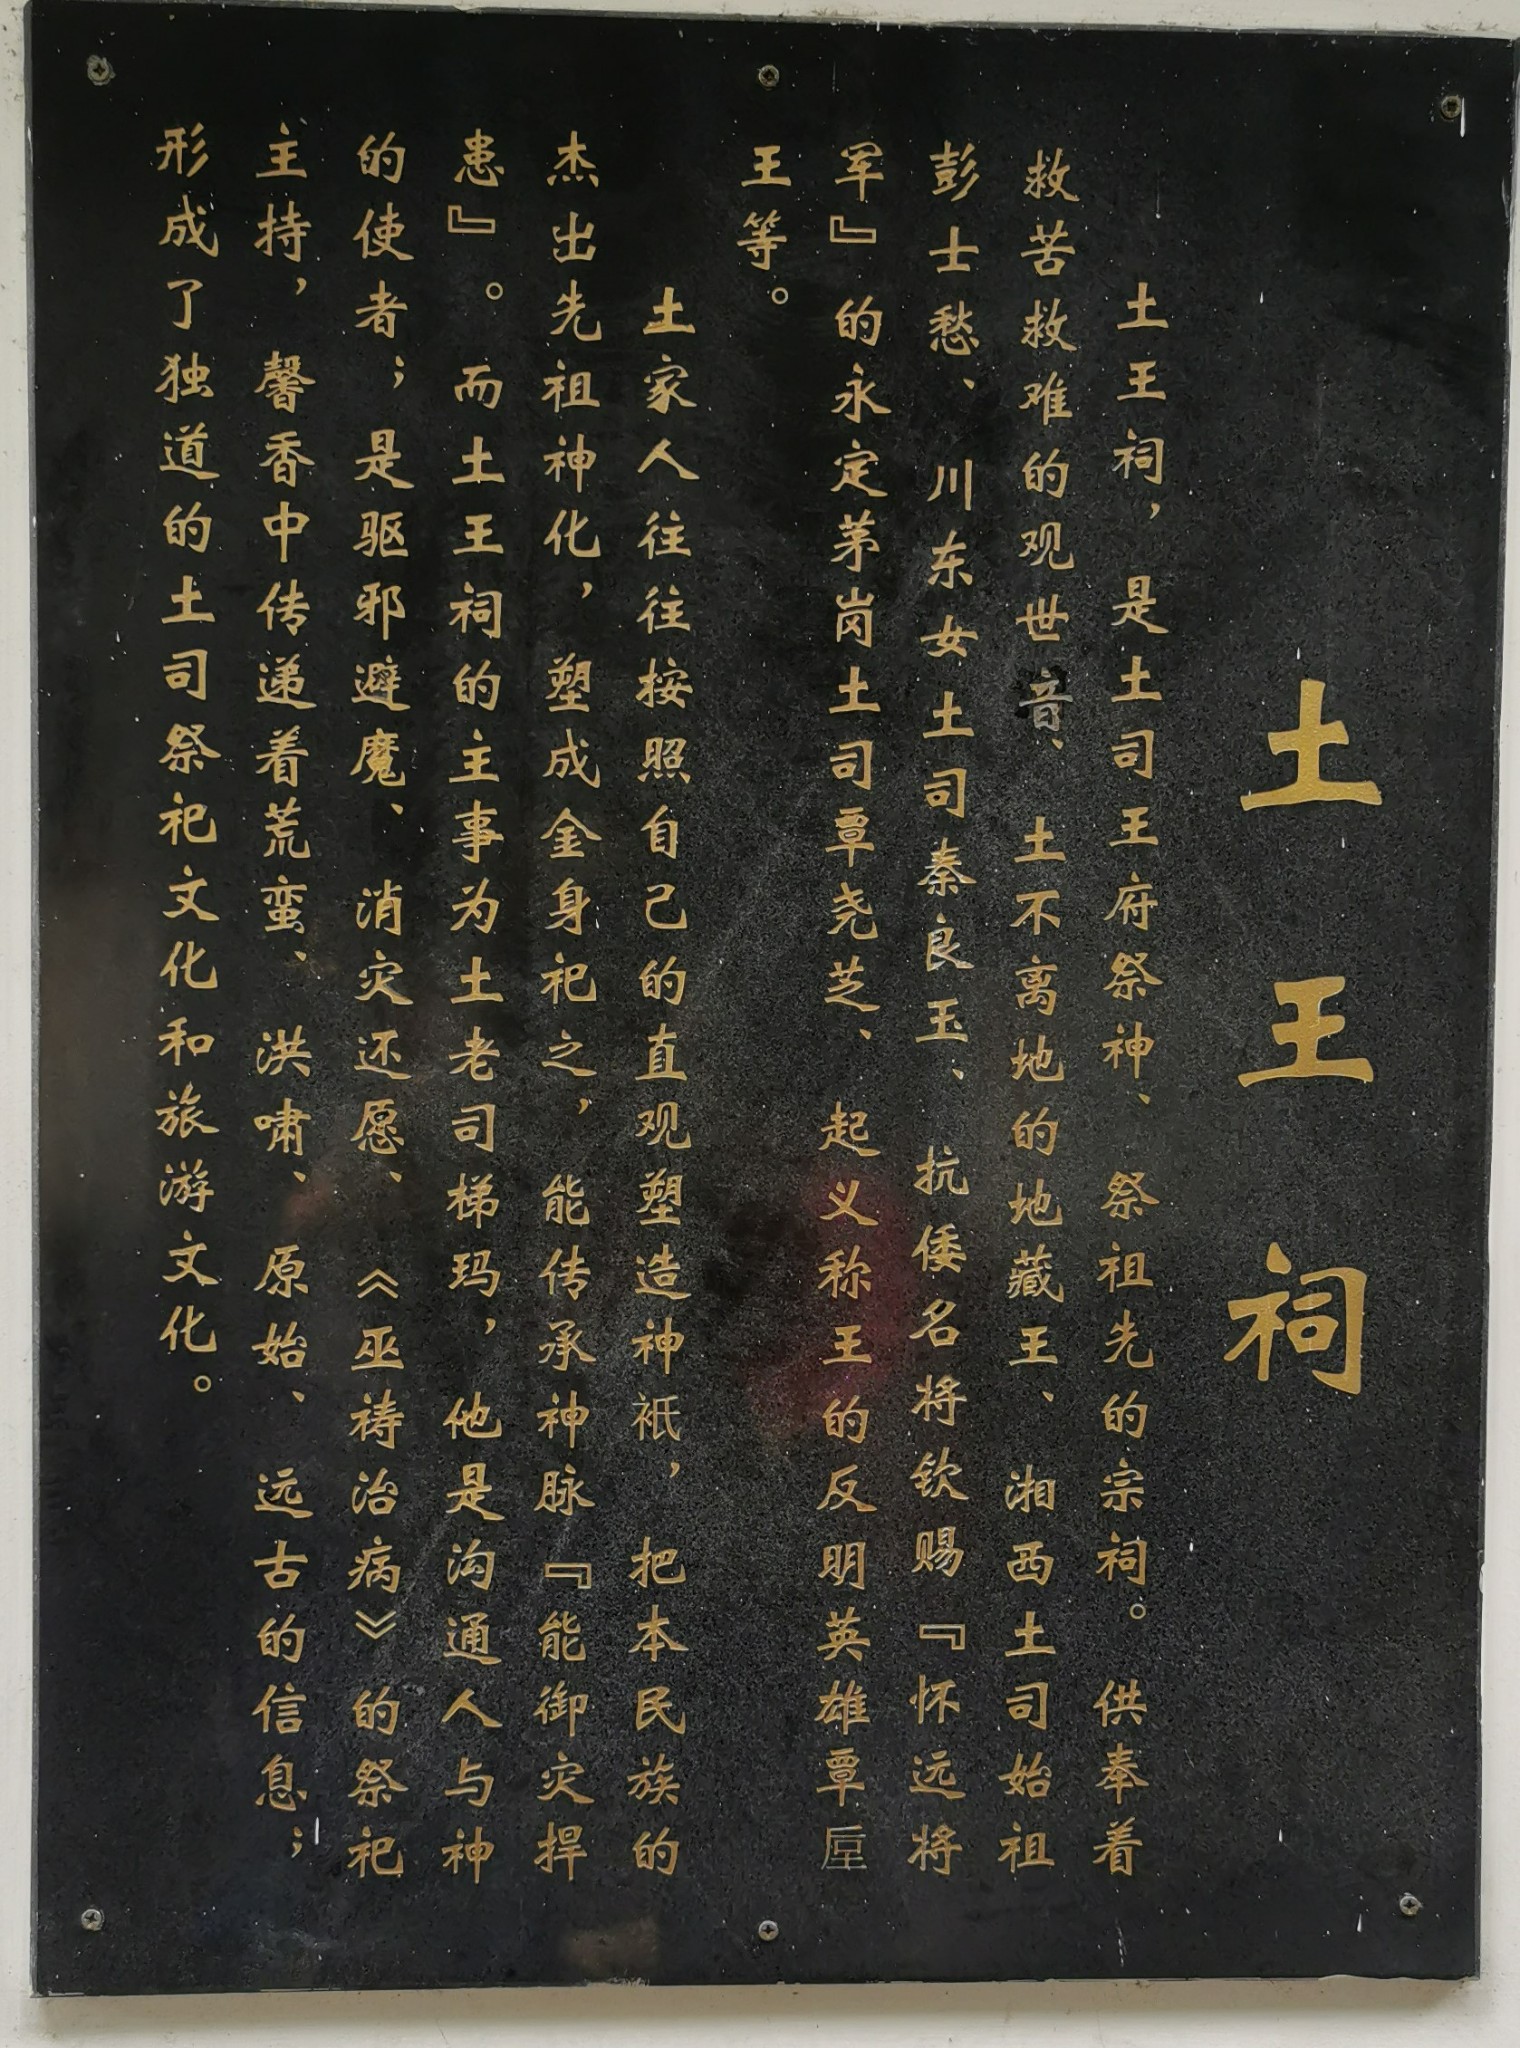 土王祠
土王祠，是土司王府祭神、祭祖先的宗祠。供奉着
救苦救难的观世音、土不离地的地藏王、湘西土司始祖
彭士愁、川东女土司秦良玉、抗倭名将钦赐『怀远将
军』的永定茅岗土司覃尧芝、起义称王的反明英雄覃垕
王等。
土家人往往按照自己的直观塑造神祇，把本民族的
杰出先祖神化，塑成金身祀之，能传承神脉『能御灾捍
患』。而土王祠的主事为土老司梯玛，他是沟通人与神
的使者；是驱邪避魔、消灾还愿、《巫祷治病》的祭祀
主持，馨香中传递着荒蛮、洪啸、原始、远古的信息；
形成了独道的土司祭祀文化和旅游文化。